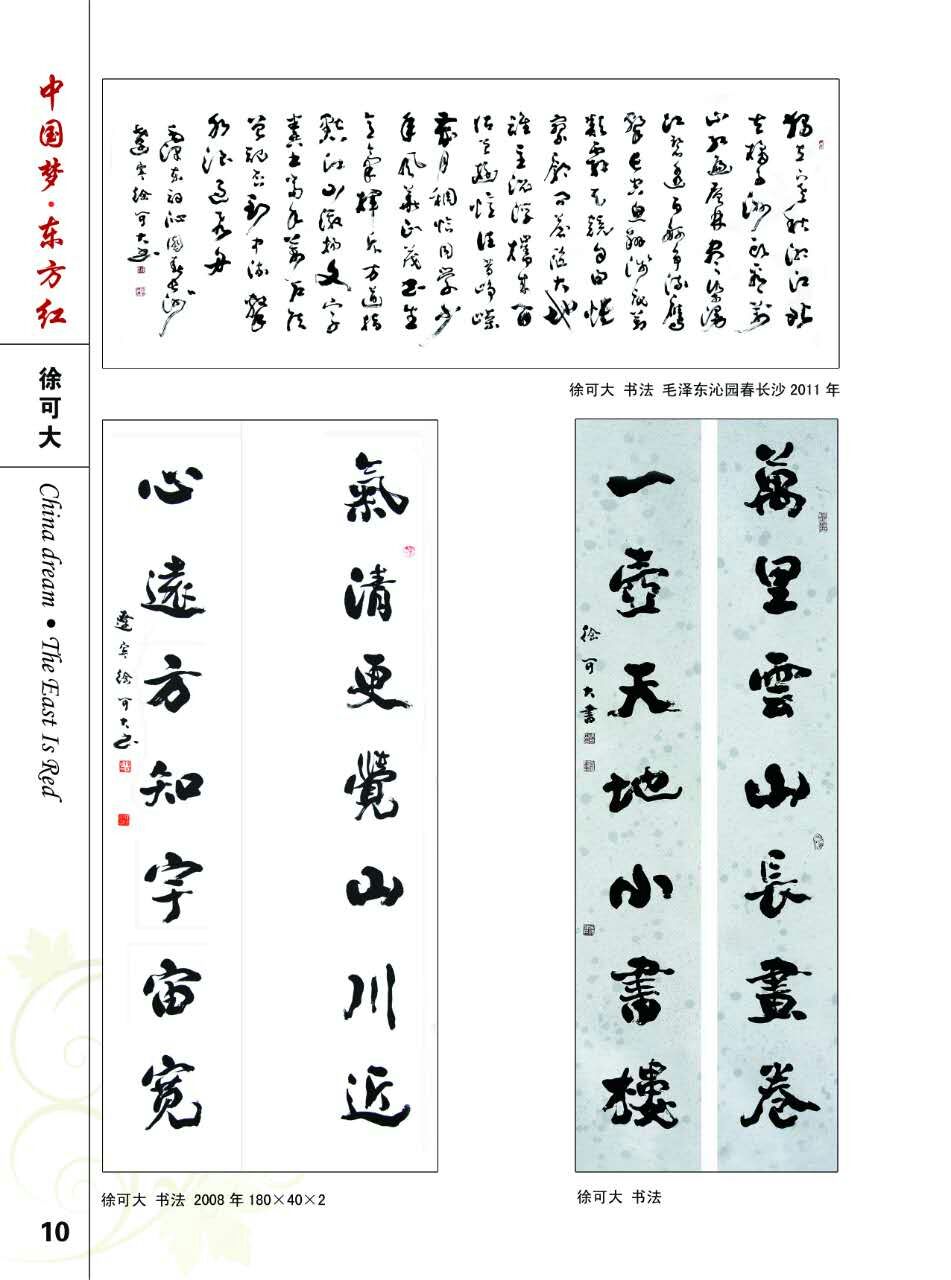 中国梦·东方红
徐可大
China dream • The East Is Red
獨立寒秋湘江北
去橘子洲头看萬
山红遍层林尽染漫
江碧透百舸争流鹰
擊长空鱼翔浅底萬
類霜天競自由悵
寥廓问苍茫大地
誰主沉浮携来百
侣曾遊憶往昔峥嵘
歲月稠恰同学少
年风華正茂书生
意氣揮斥方遒指
點江山激扬文字
糞土當年萬户侯
曾记否到中流擊
水浪遏飞舟
毛澤东词沁園春长沙
遼寧徐可大书
徐可大 书法 毛泽东沁园春长沙 2011 年
氣清更覺山川近
心遠方知宇宙宽
遼寧徐可大书
徐可大 书法 2008 年 180×40×2
萬里雲山長畫卷
一壺天地小書樓
徐可大書
徐可大 书法
10